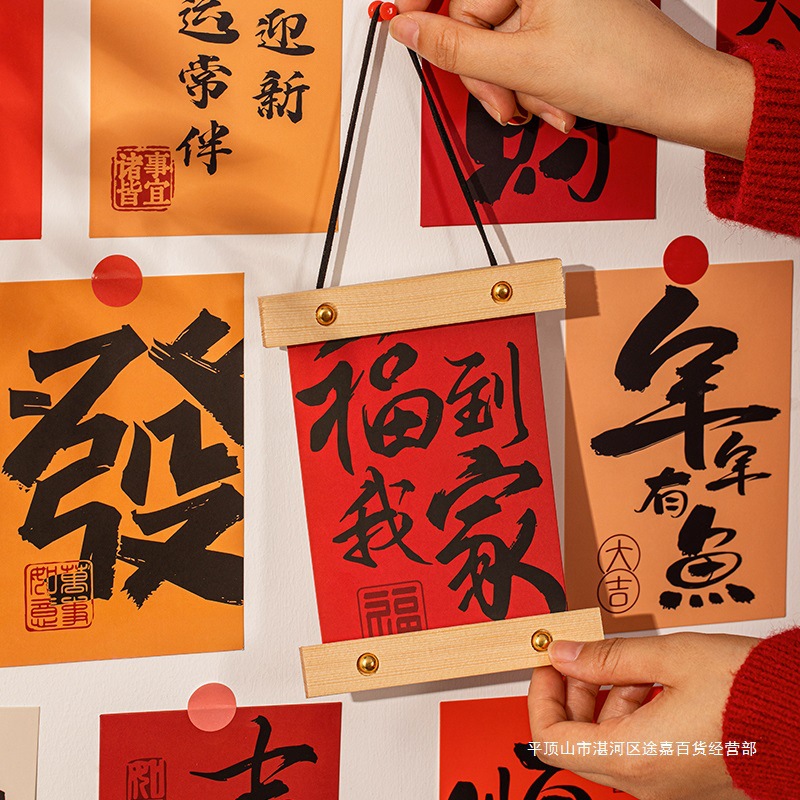 迎新
运常伴
诸事皆宜
财
發
萬事如意
福到
我家
福
年年有魚
大吉
吉
顺
平顶山市湛河区途嘉百货经营部